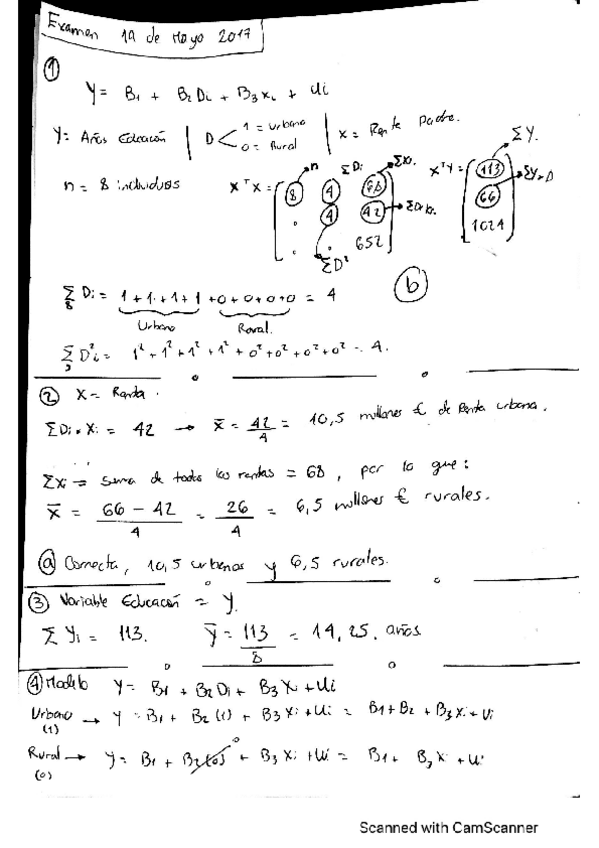 Examen 19 de Mayo 2017
①
Y = B1 + B2 Di + B3 Xi + Ui
Y = Años Educación | D < 1 = Urbano 0 = Rural | X = Renta Padre.
n = 8 individuos
XᵀX = [ 8 4 68 ; . 4 42 ; . . 652 ] n ΣDi ΣXi ΣDiXi ΣD²
XᵀY = [ 113 ; 66 ; 1024 ] ΣY. ΣY·D
ⓑ
Σ Di = 1+1+1+1 +0+0+0+0 = 4
8
Urbano Rural.
Σ D²i = 1² + 1² + 1² + 1² + 0² + 0² + 0² + 0² = 4.
② X = Renta.
ΣDi·Xi = 42 → x̄ = 42/4 = 10,5 millones € de Renta urbana.
ΣXi = Suma de todas las rentas = 68, por lo que:
X̄ = 66 - 42 / 4 = 26/4 = 6,5 millones € rurales.
ⓐ Correcta, 10,5 urbanos y 6,5 rurales.
③ Variable Educación = Y.
Σ Yi = 113. ȳ = 113/8 = 14,25. años
④ Modelo Y = B1 + B2 Di + B3 Xi + Ui
Urbano → Y = B1 + B2 (1) + B3 Xi + Ui = B1 + B2 + B3 Xi + Ui
(1)
Rural → Y = B1 + B2(0) + B3 Xi + Ui = B1 + B3 Xi + Ui
(0)
Scanned with CamScanner